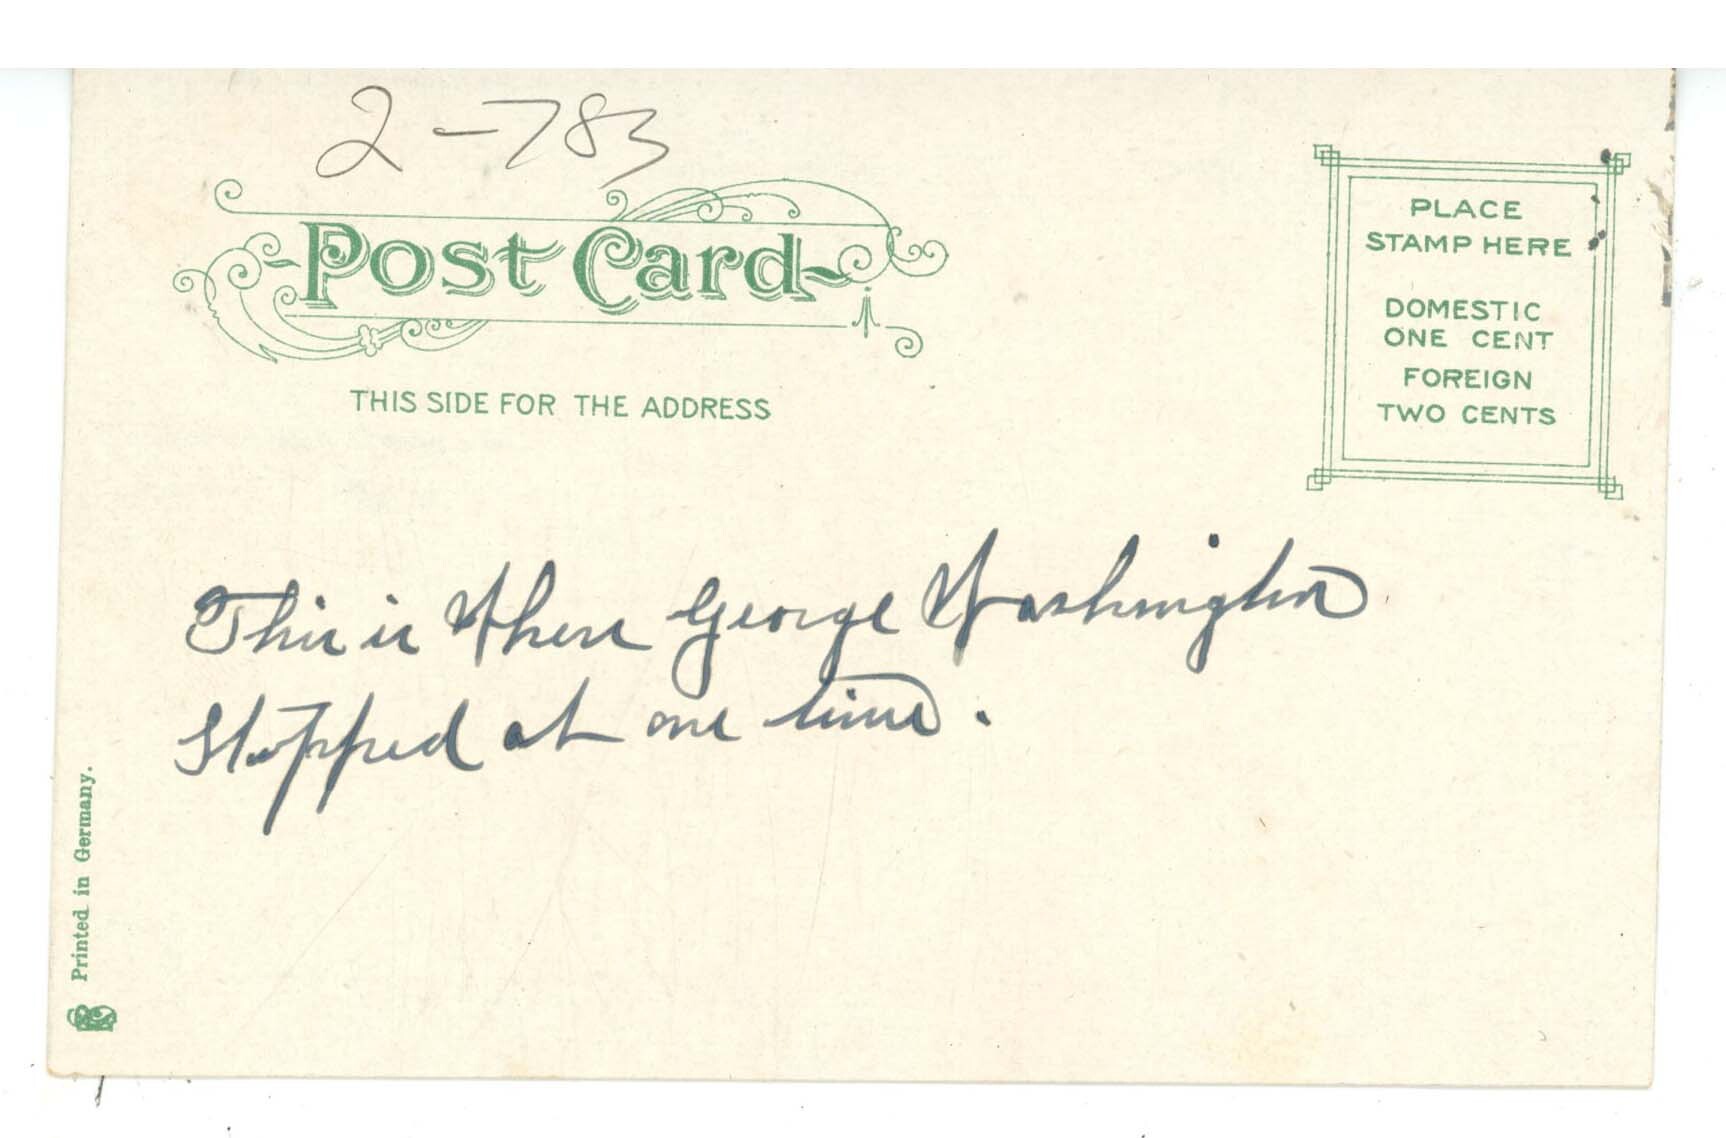 2-783
Post Card
THIS SIDE FOR THE ADDRESS
PLACE
STAMP HERE
DOMESTIC
ONE CENT
FOREIGN
TWO CENTS
This is Where George Washington
Stopped at one time.
Printed in Germany.